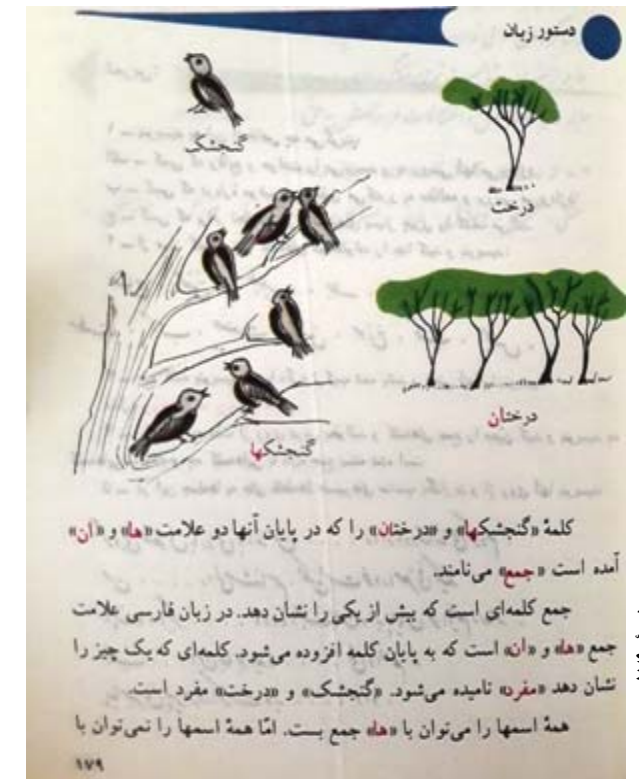 دستور زبان
گنجشک
درخت
درختان
گنجشکها
کلمهٔ «گنجشکها» و «درختان» را که در پایان آنها دو علامت «ها» و «ان»
آمده است «جمع» می‌نامند.
جمع کلمه‌ای است که بیش از یکی را نشان دهد. در زبان فارسی علامت
جمع «ها» و «ان» است که به پایان کلمه افزوده می‌شود. کلمه‌ای که یک چیز را
نشان دهد «مفرد» نامیده می‌شود. «گنجشک» و «درخت» مفرد است.
همهٔ اسمها را می‌توان با «ها» جمع بست. امّا همهٔ اسمها را نمی‌توان با
۱۷۹